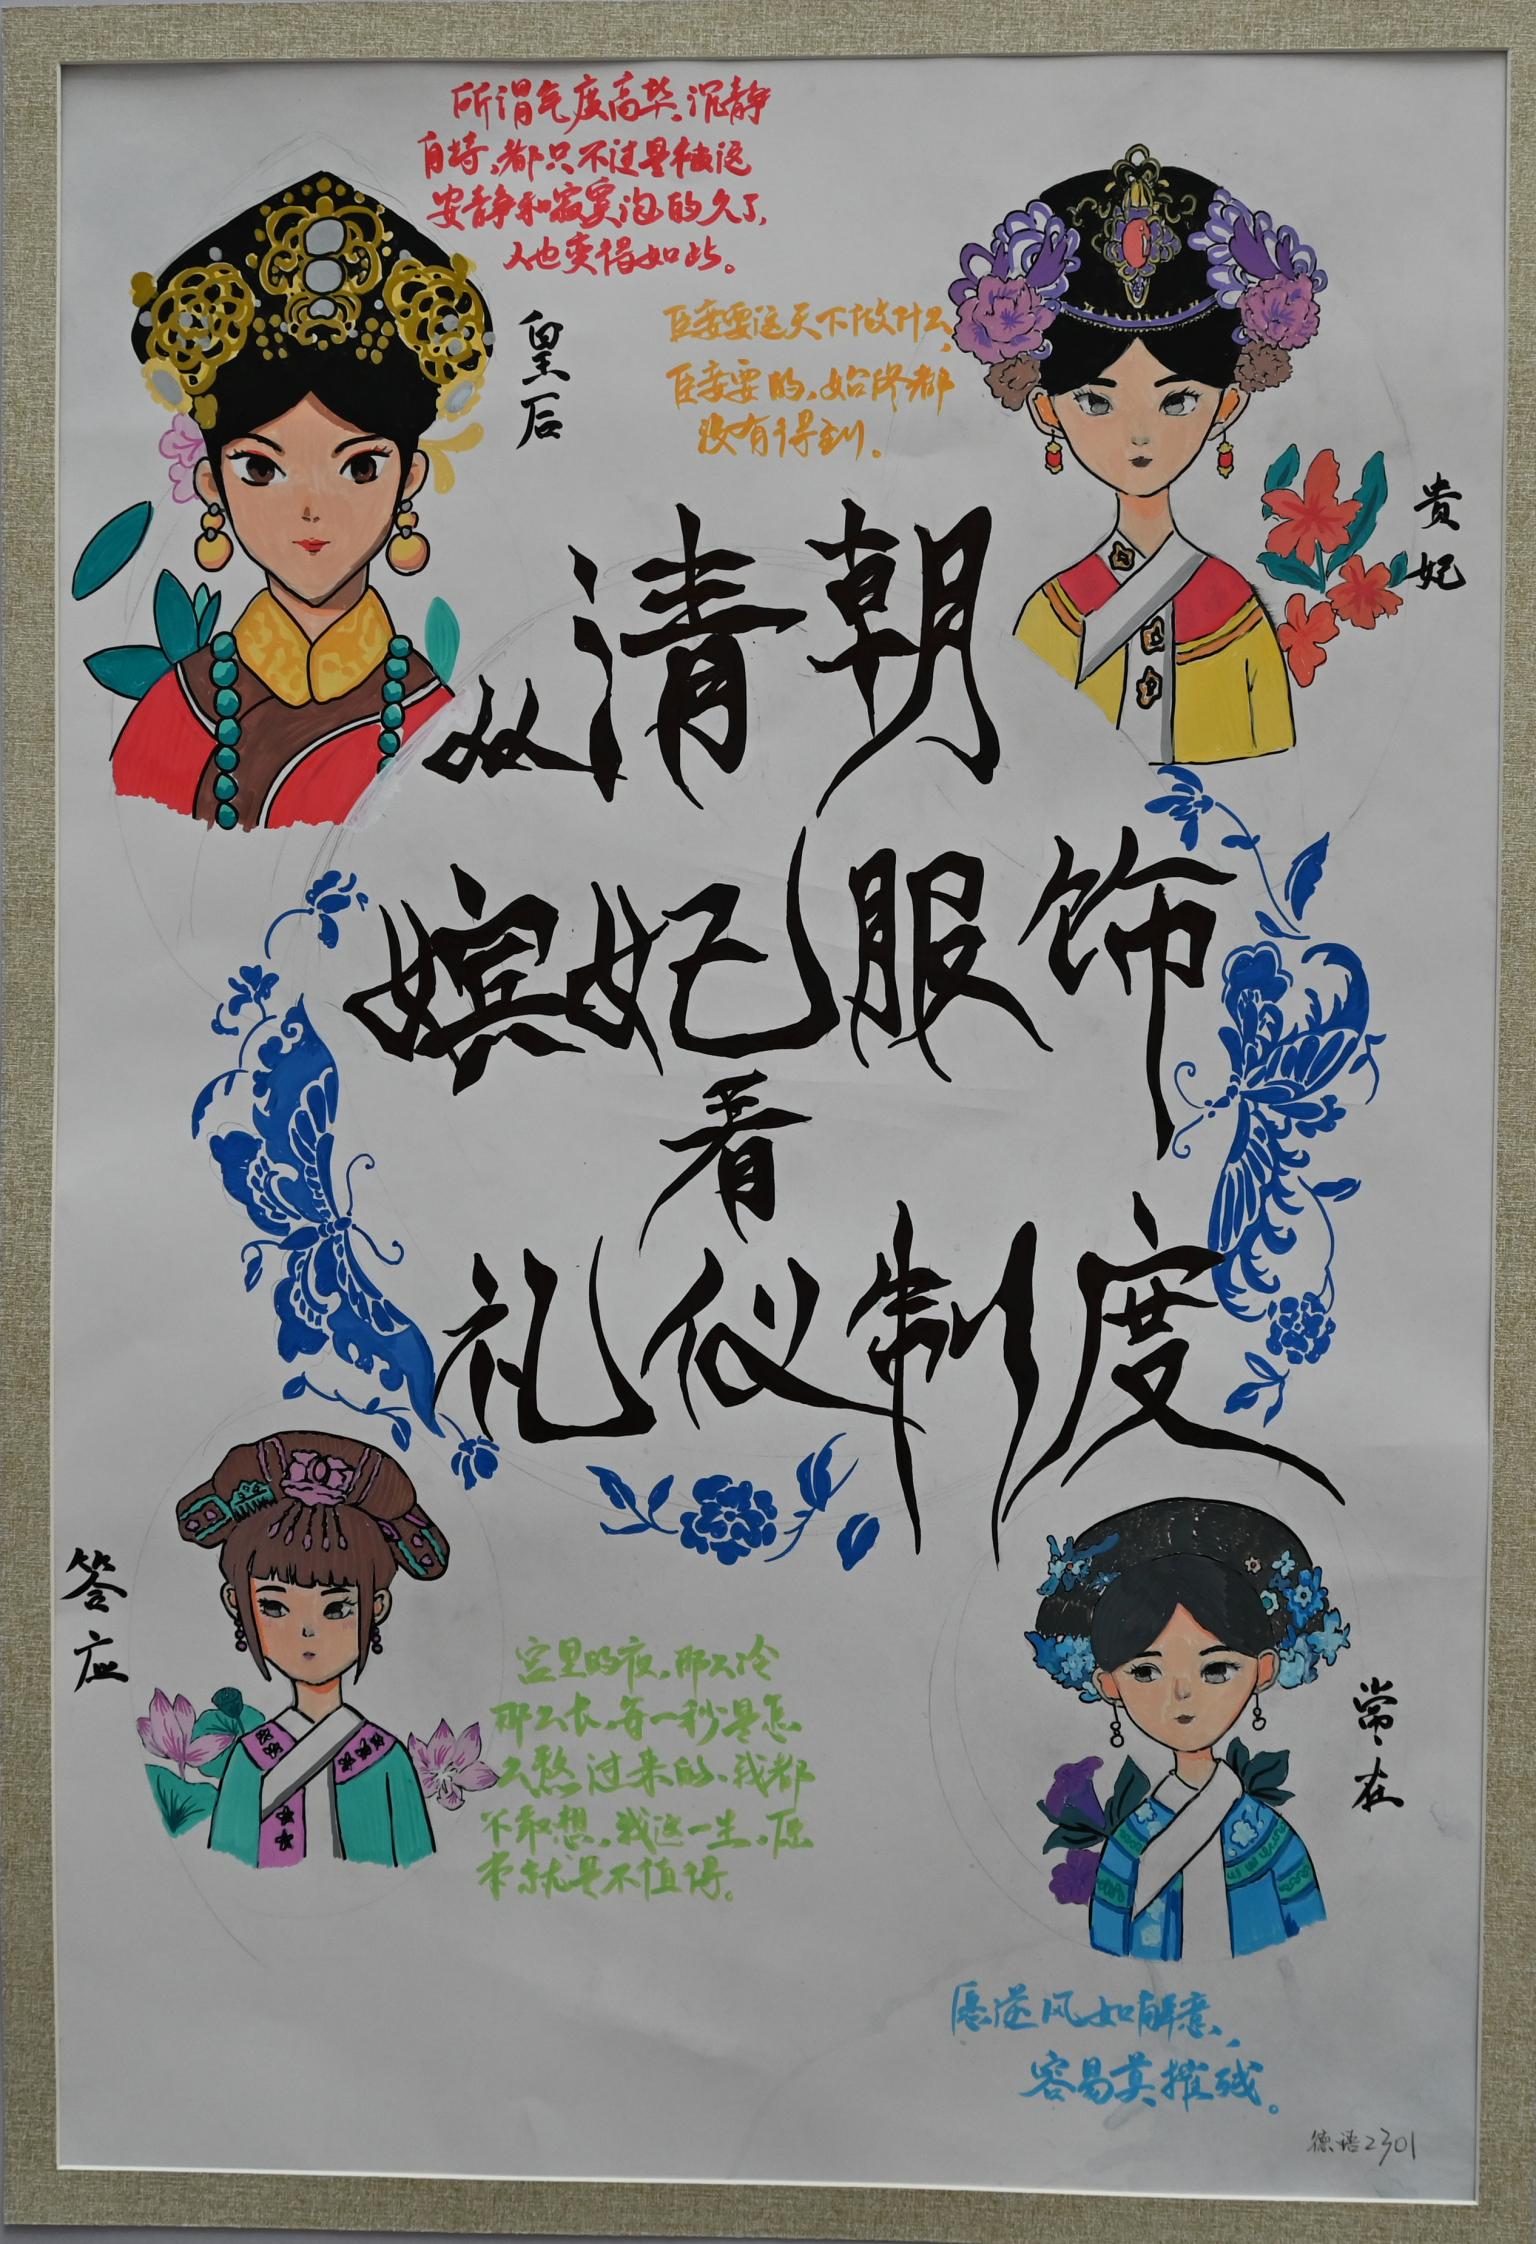 所谓气度高华、沉静
自持，都只不过是被这
安静和寂寞泡的久了，
人也变得如此。
皇后
臣妾要这天下做什么，
臣妾要的，始终都
没有得到。
贵妃
从清朝
嫔妃服饰
看
礼仪制度
答应
宫里的夜，那么冷
那么长，每一秒是怎
么熬过来的、我都
不敢想，我这一生，原
本就是不值得。
常在
愿逆风如解意，
容易莫摧残。
德语2301